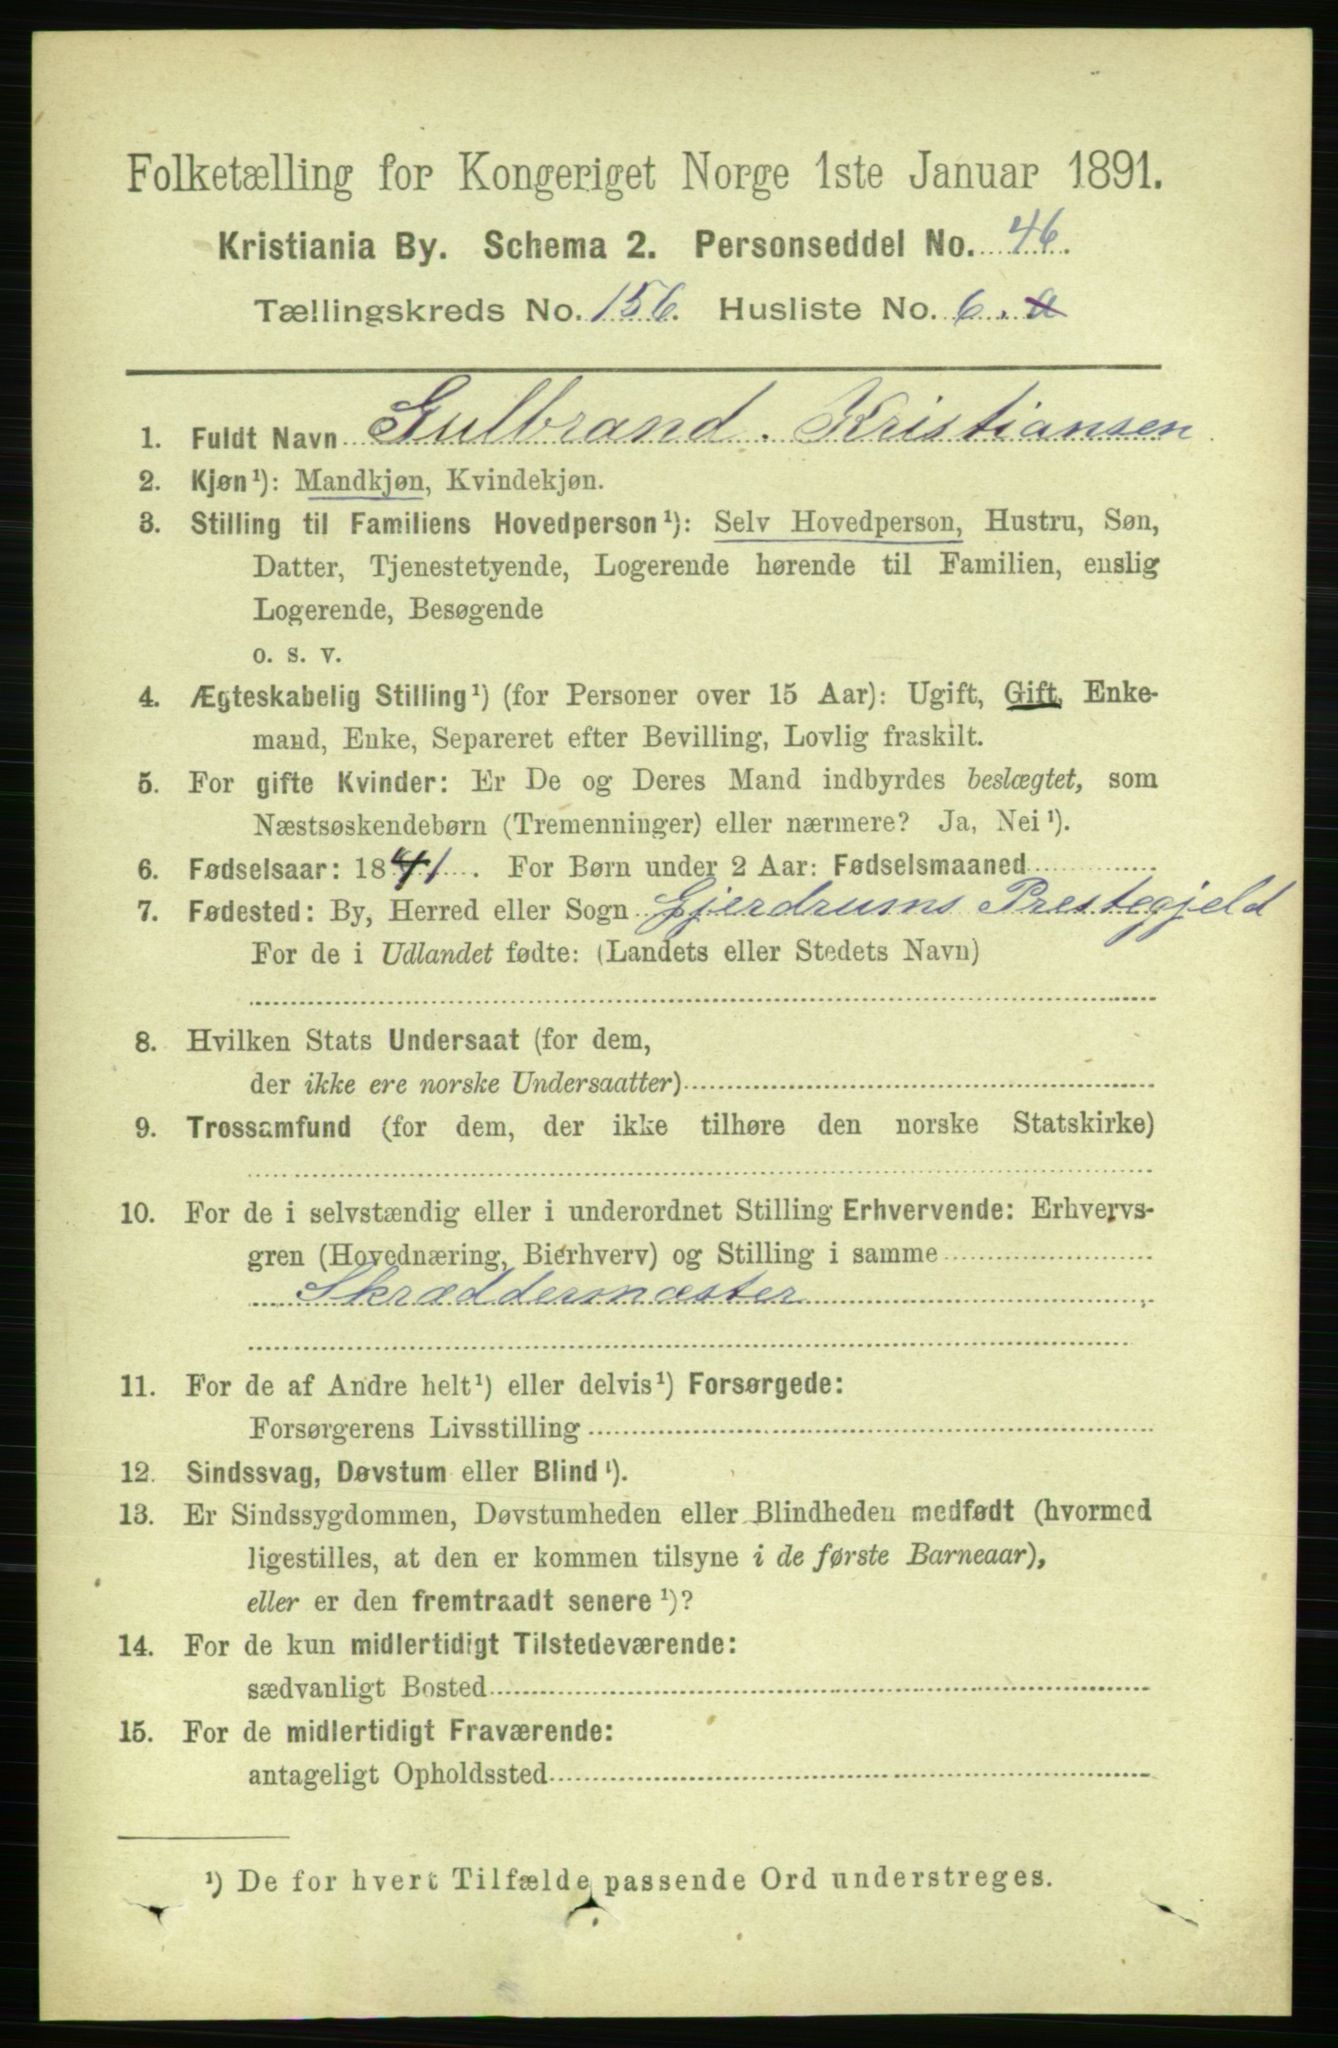 Folketælling for Kongeriget Norge 1ste Januar 1891.
Kristiania By. Schema 2. Personseddel No. 46.
Tællingskreds No. 156. Husliste No. 6. a
1. Fuldt Navn Gulbrand. Kristiansen
2. Kjøn¹): Mandkjøn, Kvindekjøn.
3. Stilling til Familiens Hovedperson¹): Selv Hovedperson, Hustru, Søn,
Datter, Tjenestetyende, Logerende hørende til Familien, enslig
Logerende, Besøgende
o. s. v.
4. Ægteskabelig Stilling¹) (for Personer over 15 Aar): Ugift, Gift, Enke-
mand, Enke, Separeret efter Bevilling, Lovlig fraskilt.
5. For gifte Kvinder: Er De og Deres Mand indbyrdes beslægtet, som
Næstsøskendebørn (Tremenninger) eller nærmere? Ja, Nei¹).
6. Fødselsaar: 1841. For Børn under 2 Aar: Fødselsmaaned
7. Fødested: By, Herred eller Sogn Gjerdrums Prestegjeld
For de i Udlandet fødte: (Landets eller Stedets Navn)
8. Hvilken Stats Undersaat (for dem,
der ikke ere norske Undersaatter)
9. Trossamfund (for dem, der ikke tilhøre den norske Statskirke)
10. For de i selvstændig eller i underordnet Stilling Erhvervende: Erhvervs-
gren (Hovednæring, Bierhverv) og Stilling i samme
Skræddermæster
11. For de af Andre helt¹) eller delvis¹) Forsørgede:
Forsørgerens Livsstilling
12. Sindssvag, Døvstum eller Blind¹).
13. Er Sindssygdommen, Døvstumheden eller Blindheden medfødt (hvormed
ligestilles, at den er kommen tilsyne i de første Barneaar),
eller er den fremtraadt senere¹)?
14. For de kun midlertidigt Tilstedeværende:
sædvanligt Bosted
15. For de midlertidigt Fraværende:
antageligt Opholdssted
¹) De for hvert Tilfælde passende Ord understreges.